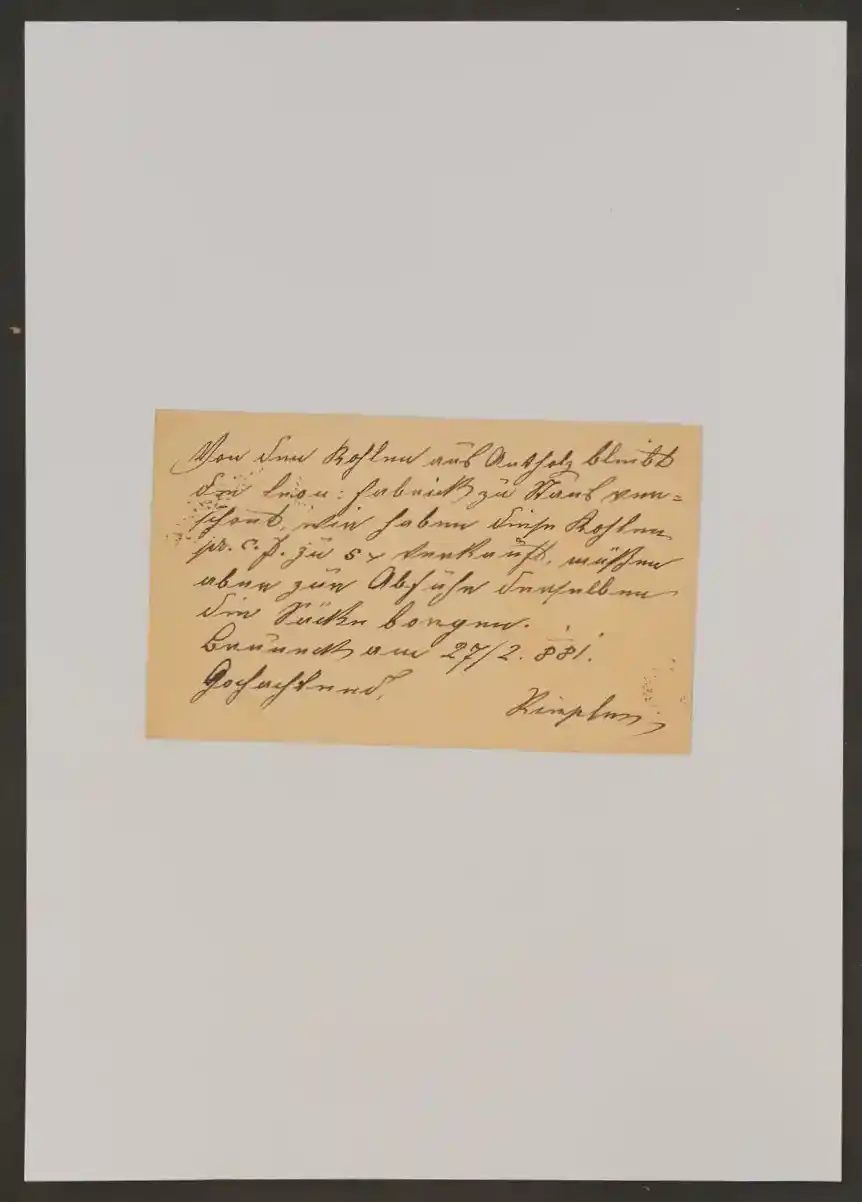 Von den Kohlen aus Antholz bleibt
die Fabrick zu Taufers ver=
schont, wir haben diese Kohlen
pr. c. f. zu 5 x verkauft, müssen
aber zur Abfuhr derselben
die Säcke borgen.
Bruneck am 27/2. 881.
Hochachtend,